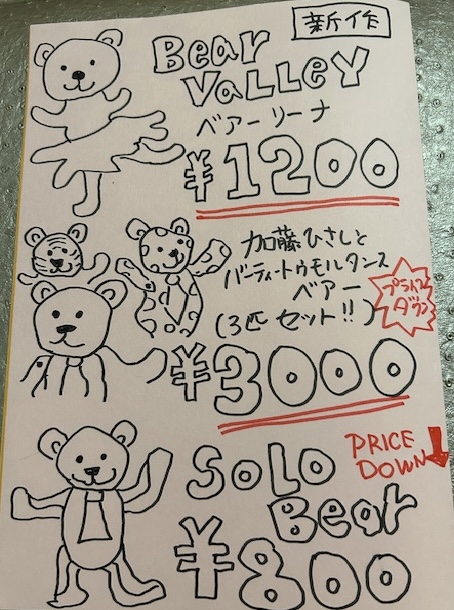 新作
Bear
VaLLEY
ベアーリーナ
¥1200
加藤ひさしと
バーティートゥモルタンス
ベアー
(3匹 セット!!)
プライス
ダウン
¥3000
SoLo
Bear
PRICE
DOWN
¥800